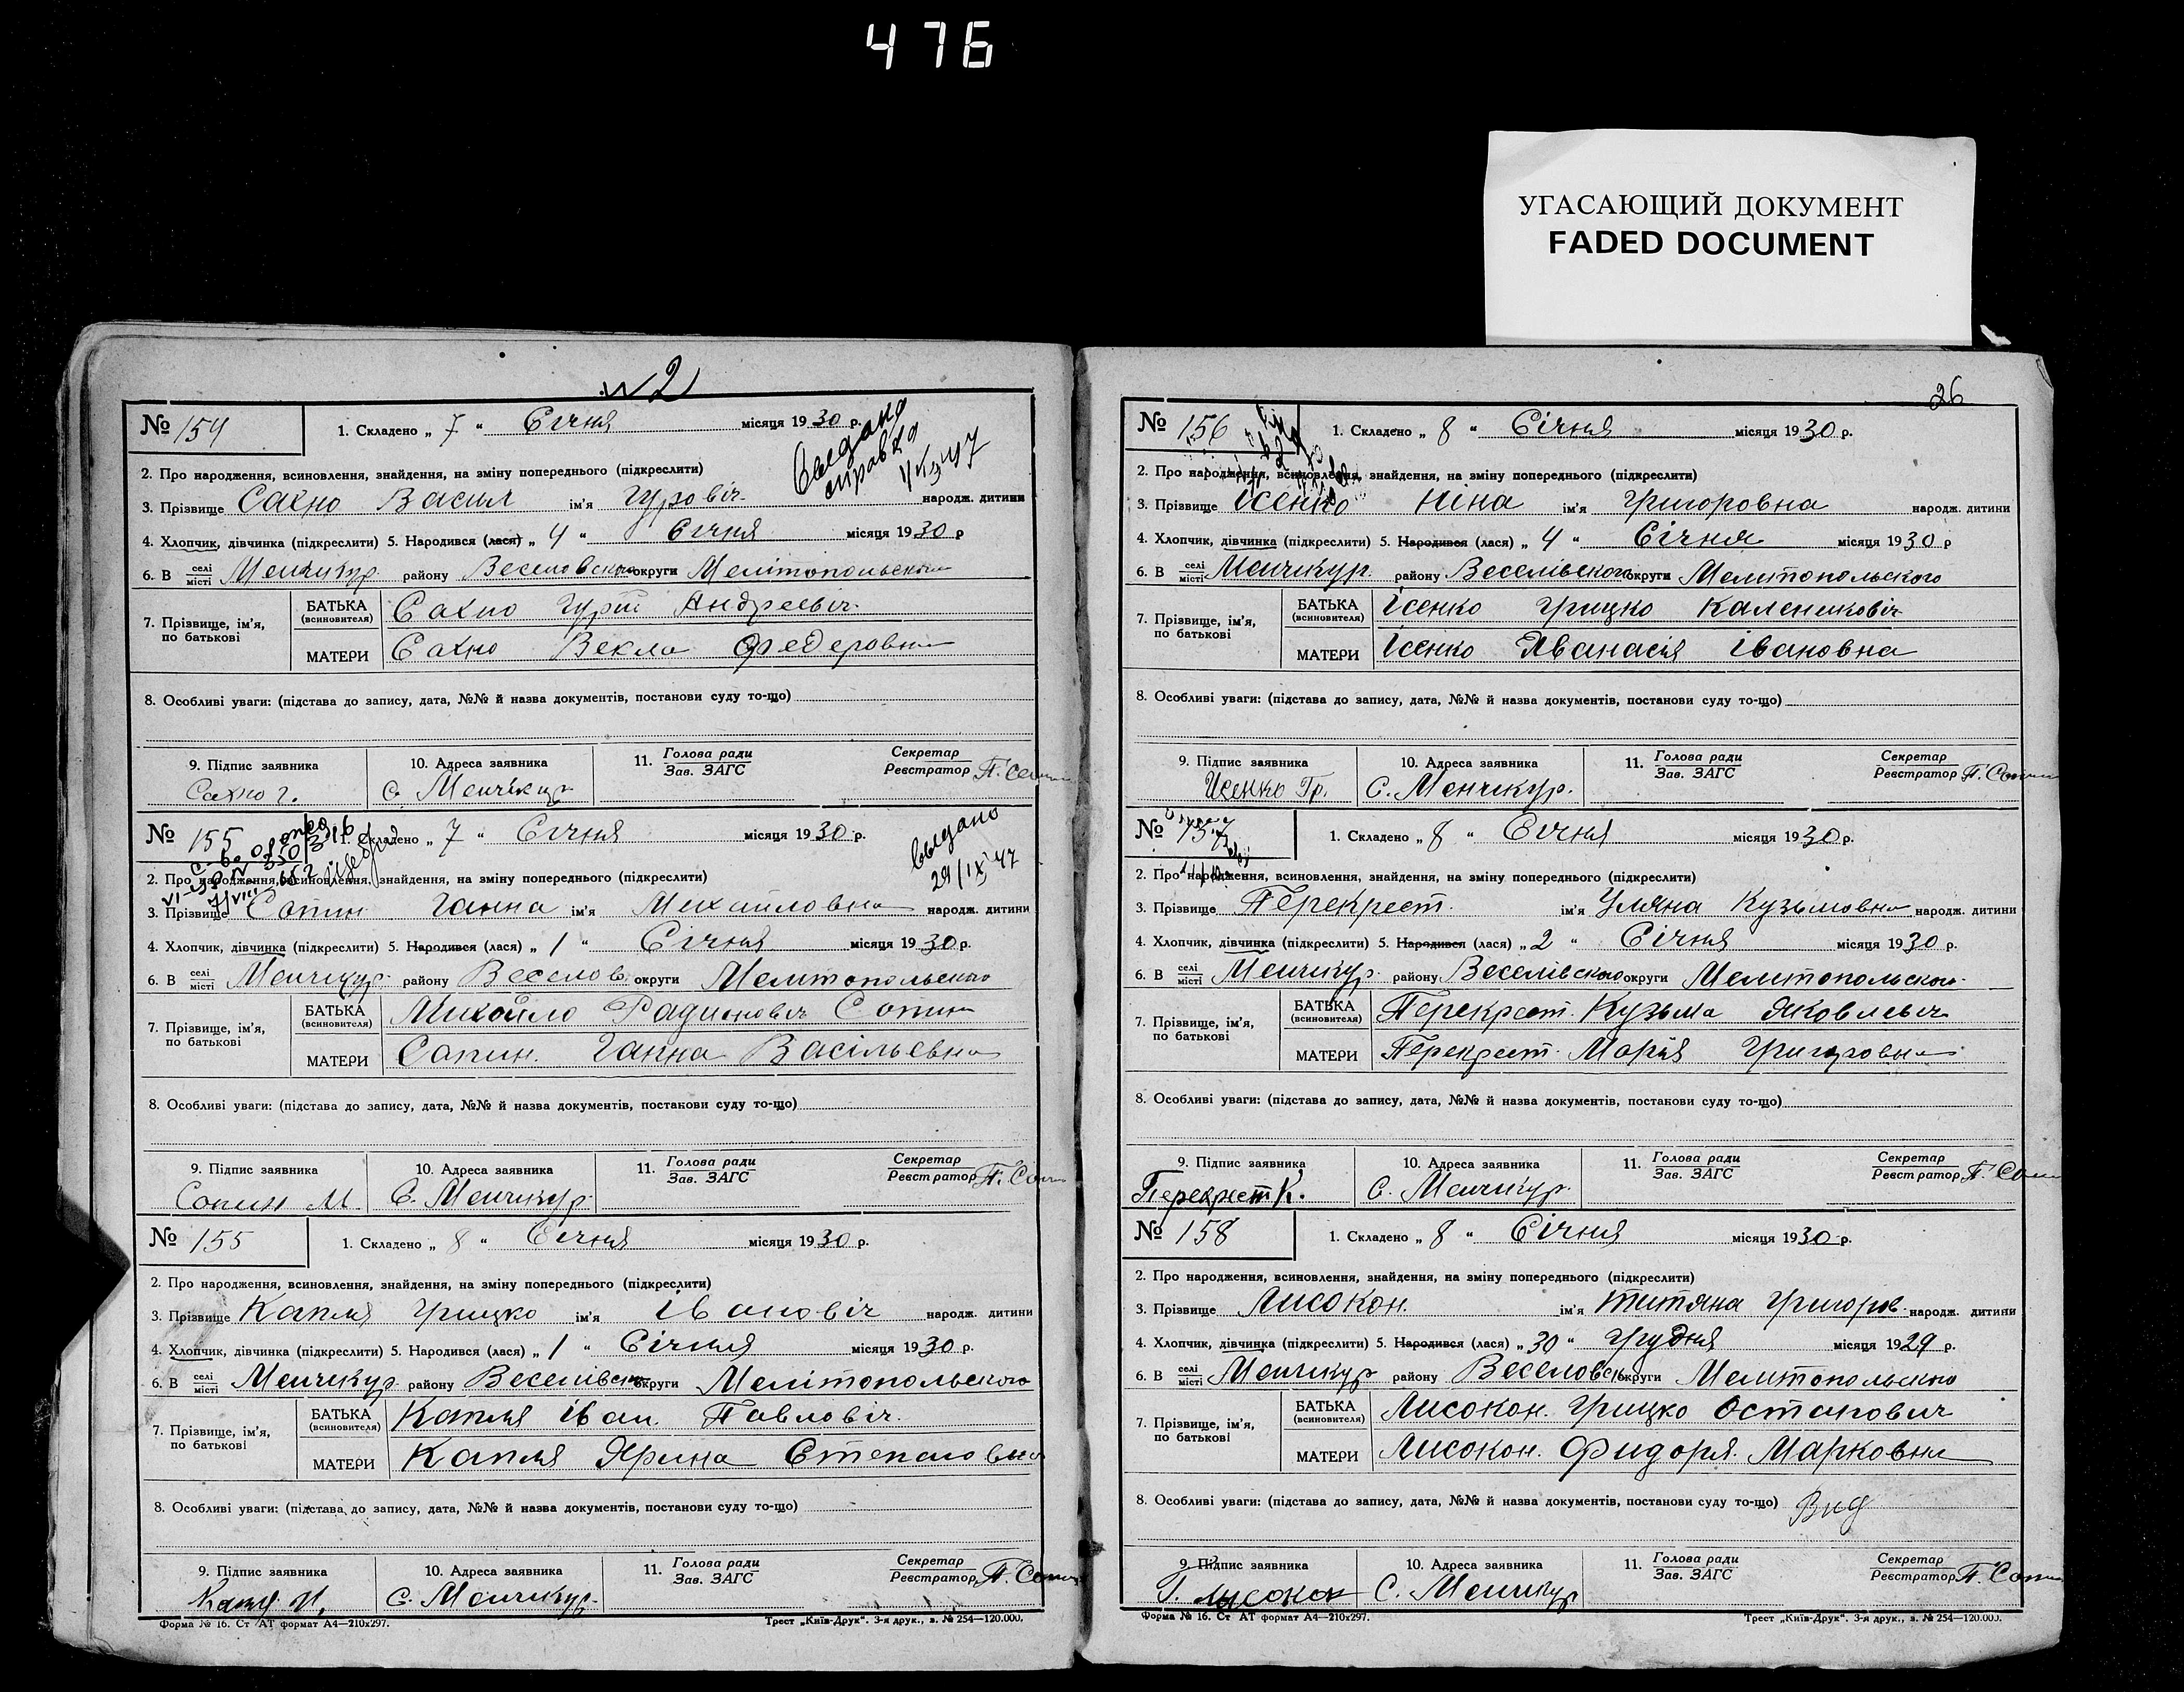 476
УГАСАЮЩИЙ ДОКУМЕНТ
FADED DOCUMENT
№ 154
1. Складено „ 7 “ Січня місяця 1930 р.
Выдана
справка
2. Про народження, всиновлення, знайдення, на зміну попереднього (підкреслити)
3. Прізвище Сахно Васил ім'я Гуровіч народж. дитини
4. Хлопчик, дівчинка (підкреслити) 5. Народився (лася) „ 4 “ Січня місяця 1930 р
6. В селі місті Менчикур району Веселовского округи Мелітопольского
7. Прізвище, ім'я, по батькові
БАТЬКА (всиновителя) Сахно Гурій Андреевіч
МАТЕРИ Сахно Векла Федеровна
8. Особливі уваги: (підстава до запису, дата, №№ й назва документів, постанови суду то-що)
9. Підпис заявника
Сахно г.
10. Адреса заявника
С. Менчикур
11. Голова ради
Зав. ЗАГС
Секретар
Реєстратор
№ 155
1. Складено „ 7 “ Січня місяця 1930 р.
выдано
29/IX 47
2. Про народження, всиновлення, знайдення, на зміну попереднього (підкреслити)
3. Прізвище Сопин Ганна ім'я Михайловна народж. дитини
4. Хлопчик, дівчинка (підкреслити) 5. Народився (лася) „ 1 “ Січня місяця 1930 р.
6. В селі місті Менчикур району Веселов. округи Мелитопольского
7. Прізвище, ім'я, по батькові
БАТЬКА (всиновителя) Михайло Радионовіч Сопин
МАТЕРИ Сапин. Ганна Васільевна
8. Особливі уваги: (підстава до запису, дата, №№ й назва документів, постанови суду то-що)
9. Підпис заявника
Сопин М.
10. Адреса заявника
С. Менчикур.
11. Голова ради
Зав. ЗАГС
Секретар
Реєстратор
№ 155
1. Складено „ 8 “ Січня місяця 1930 р.
2. Про народження, всиновлення, знайдення, на зміну попереднього (підкреслити)
3. Прізвище Капля Грицко ім'я Івановіч народж. дитини
4. Хлопчик, дівчинка (підкреслити) 5. Народився (лася) „ 1 “ Січня місяця 1930 р.
6. В селі місті Менчикур району Веселівско округи Мелітопольского
7. Прізвище, ім'я, по батькові
БАТЬКА (всиновителя) Капля Іван Павловіч.
МАТЕРИ Капля Ярина Степановна
8. Особливі уваги: (підстава до запису, дата, №№ й назва документів, постанови суду то-що)
9. Підпис заявника
10. Адреса заявника
С. Менчикур.
11. Голова ради
Зав. ЗАГС
Секретар
Реєстратор
Форма № 16. Ст АТ формат А4—210x297.
Трест „Київ-Друк“. 3-я друк., з. № 254—120.000.
26
№ 156
1. Складено „ 8 “ Січня місяця 1930 р.
2. Про народження, всиновлення, знайдення, на зміну попереднього (підкреслити)
3. Прізвище Ісенко Ніна ім'я Григоровна народж. дитини
4. Хлопчик, дівчинка (підкреслити) 5. Народився (лася) „ 4 “ Січня місяця 1930 р
6. В селі місті Менчикур. району Веселівского округи Мелитопольского
7. Прізвище, ім'я, по батькові
БАТЬКА (всиновителя) Ісенко Грицко Калениковіч
МАТЕРИ Ісенко Яванасія Івановна
8. Особливі уваги: (підстава до запису, дата, №№ й назва документів, постанови суду то-що)
9. Підпис заявника
Исенко Гр.
10. Адреса заявника
С. Менчикур.
11. Голова ради
Зав. ЗАГС
Секретар
Реєстратор
№ 157
1. Складено „ 8 “ Січня місяця 1930 р.
2. Про народження, всиновлення, знайдення, на зміну попереднього (підкреслити)
3. Прізвище Перекрест. ім'я Уляна Кузьмовна народж. дитини
4. Хлопчик, дівчинка (підкреслити) 5. Народився (лася) „ 2 “ Січня місяця 1930 р.
6. В селі місті Менчикур. району Веселівского округи Мелитопольского.
7. Прізвище, ім'я, по батькові
БАТЬКА (всиновителя) Перекрест. Кузьма Яковлевіч
МАТЕРИ Перекрест. Марія Григоровна
8. Особливі уваги: (підстава до запису, дата, №№ й назва документів, постанови суду то-що)
9. Підпис заявника
Перекрест К.
10. Адреса заявника
С. Менчикур.
11. Голова ради
Зав. ЗАГС
Секретар
Реєстратор
№ 158
1. Складено „ 8 “ Січня місяця 1930 р.
2. Про народження, всиновлення, знайдення, на зміну попереднього (підкреслити)
3. Прізвище Лисокон. ім'я Титяна Григоров. народж. дитини
4. Хлопчик, дівчинка (підкреслити) 5. Народився (лася) „ 30 “ Грудня місяця 1929 р.
6. В селі місті Менчикур району Веселовск округи Мелитопольско
7. Прізвище, ім'я, по батькові
БАТЬКА (всиновителя) Лисокон. Грицко Остапович
МАТЕРИ Лисокон. Фидоря. Марковна
8. Особливі уваги: (підстава до запису, дата, №№ й назва документів, постанови суду то-що) Вид
9. Підпис заявника
Г. Лисокон
10. Адреса заявника
С. Менчикур
11. Голова ради
Зав. ЗАГС
Секретар
Реєстратор
Форма № 16. Ст АТ формат А4—210x297.
Трест „Київ-Друк“. 3-я друк., з. № 254—120.000.